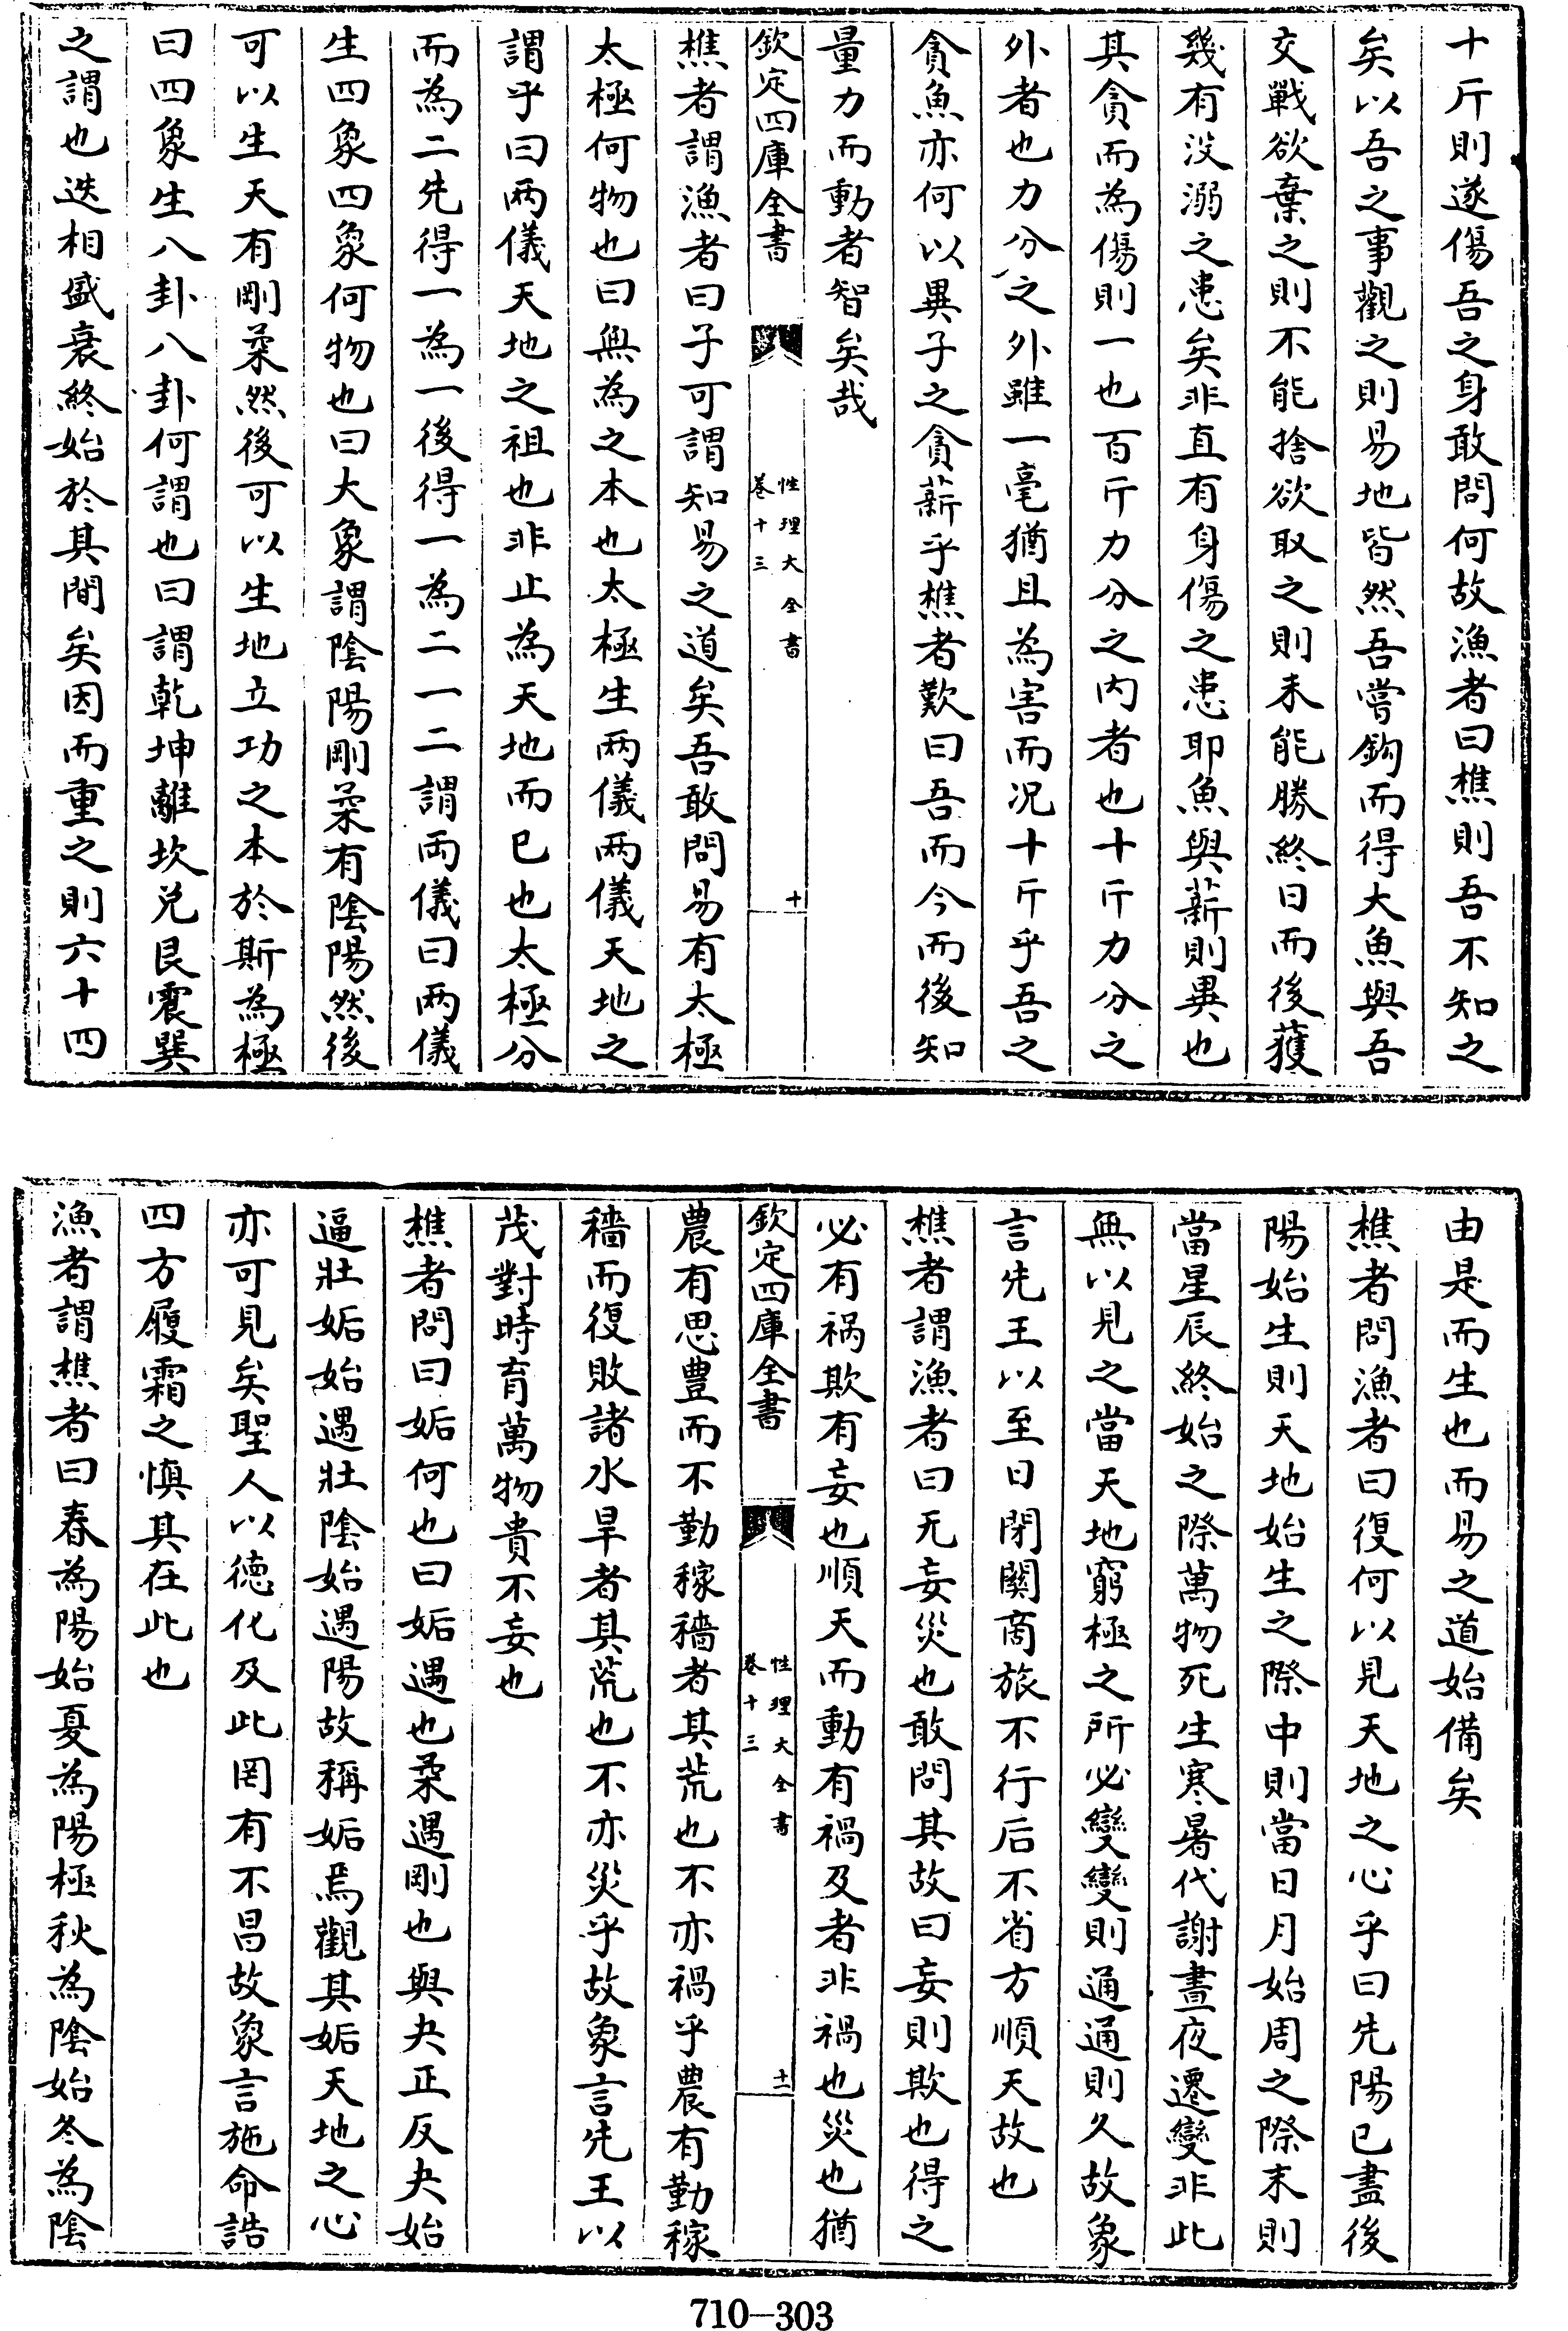 十斤則遂傷吾之身敢問何故漁者曰樵則吾不知之
矣以吾之事觀之則易地皆然吾嘗鈎而得大魚與吾
交戰欲棄之則不能捨欲取之則未能勝終日而後獲
幾有没溺之患矣非直有身傷之患耶魚與薪則異也
其貪而為傷則一也百斤力分之内者也十斤力分之
外者也力分之外雖一毫猶且為害而况十斤乎吾之
貪魚亦何以異子之貪薪乎樵者歎曰吾而今而後知
量力而動者智矣哉
欽定四庫全書
性理大全書
卷十三
十
樵者謂漁者曰子可謂知易之道矣吾敢問易有太極
太極何物也曰無為之本也太極生兩儀兩儀天地之
謂乎曰兩儀天地之祖也非止為天地而已也太極分
而為二先得一為一後得一為二一二謂兩儀曰兩儀
生四象四象何物也曰大象謂陰陽剛柔有陰陽然後
可以生天有剛柔然後可以生地立功之本於斯為極
曰四象生八卦八卦何謂也曰謂乾坤離坎兑艮震巽
之謂也迭相盛衰終始於其間矣因而重之則六十四
由是而生也而易之道始備矣
樵者問漁者曰復何以見天地之心乎曰先陽已盡後
陽始生則天地始生之際中則當日月始周之際末則
當星辰終始之際萬物死生寒暑代謝晝夜遷變非此
無以見之當天地窮極之所必變變則通通則久故象
言先王以至日閉關商旅不行后不省方順天故也
樵者謂漁者曰无妄災也敢問其故曰妄則欺也得之
必有禍欺有妄也順天而動有禍及者非禍也災也猶
欽定四庫全書
性理大全書
卷十三
十一
農有思豊而不勤稼穡者其荒也不亦禍乎農有勤稼
穡而復敗諸水旱者其荒也不亦災乎故象言先王以
茂對時育萬物貴不妄也
樵者問曰姤何也曰姤遇也柔遇剛也與夬正反夬始
逼壯姤始遇壯陰始遇陽故稱姤焉觀其姤天地之心
亦可見矣聖人以德化及此罔有不昌故象言施命誥
四方履霜之慎其在此也
漁者謂樵者曰春為陽始夏為陽極秋為陰始冬為陰
710-303